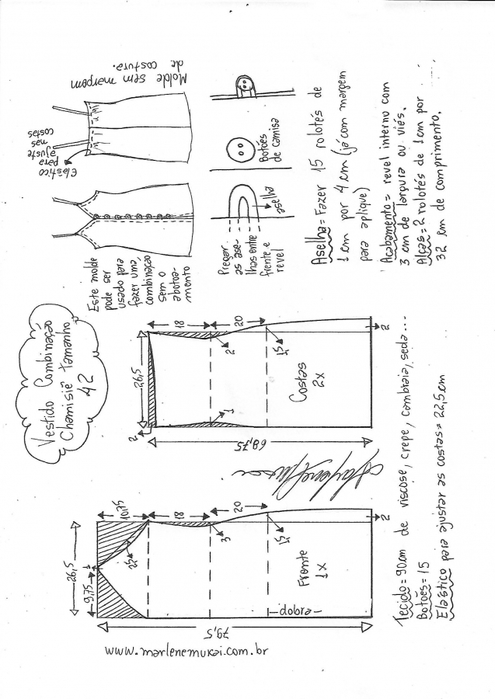 Vestido Combinação
Chamisiê tamanho
42
Este molde
pode ser
usado para
fazer uma
combinação
sem o
abotoa-
mento
Elástico
para
ajuste
nas
costas
Molde sem margem
de costura.
Pregar
as ase-
lhas entre
frente e
revel
aselha
botões
de camisa
Aselha = Fazer 15 rolotés de
1 cm por 4 cm (já com margem
para aplique)
Acabamento = revel interno com
3 cm de largura ou viés.
Alças = 2 rolotés de 1 cm por
32 cm de comprimento.
26,5
9,75
1
10,75
18
20
2,5
3
1,5
2
79,5
Frente
1x
dobra
26,5
2
18
20
2
1
1,5
2
68,75
Costas
2x
www.marlenemukai.com.br
Tecido = 90 cm de viscose, crepe, cambraia, seda...
Botões = 15
Elástico para ajustar as costas = 22,5 cm